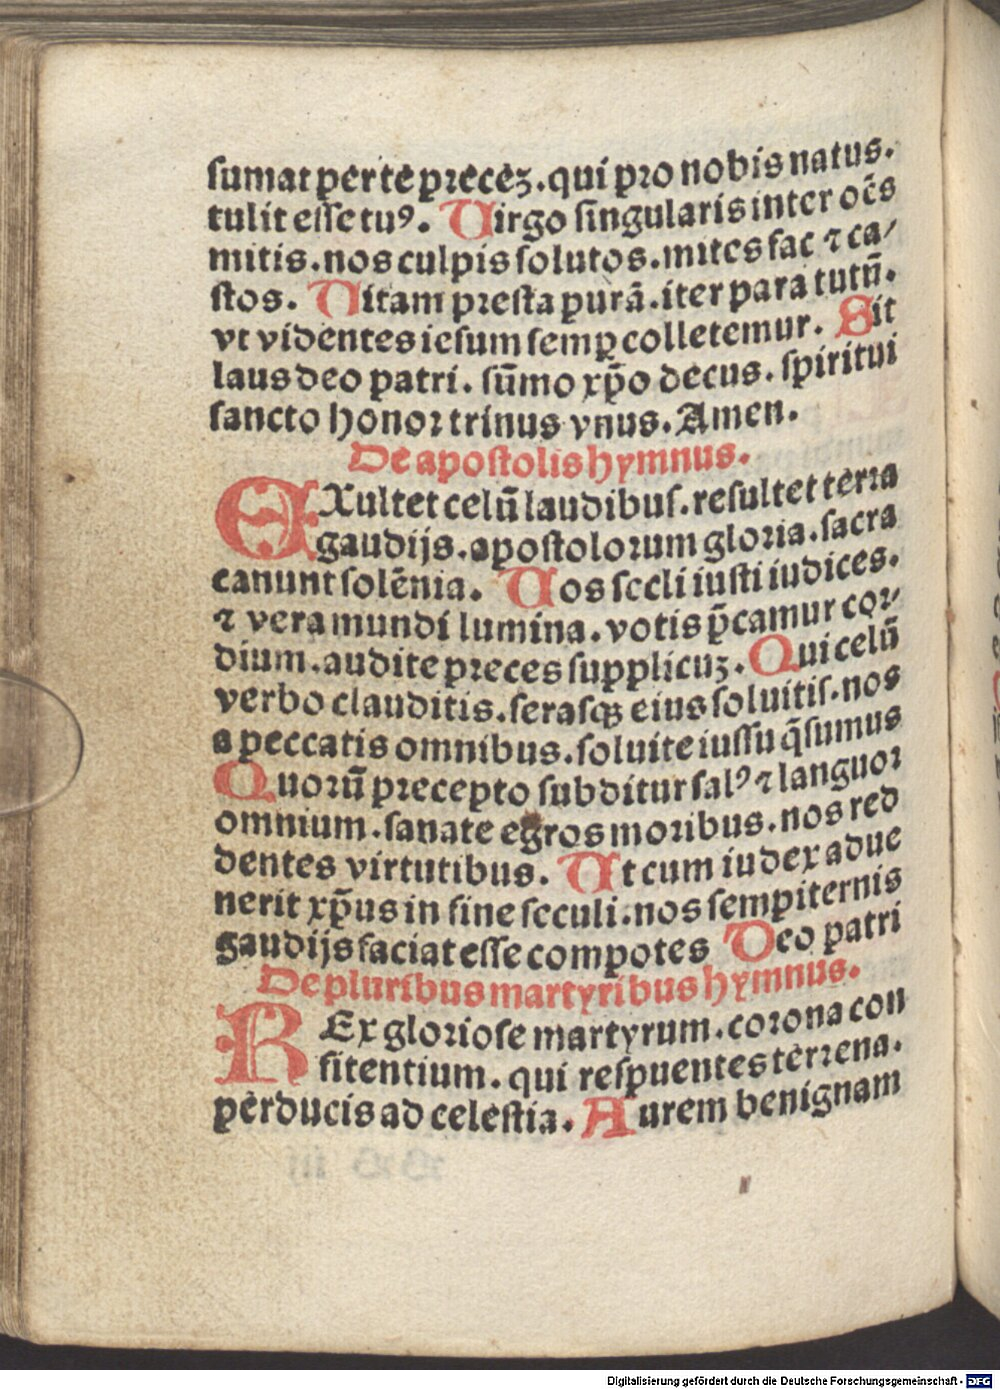 sumat per te precez. qui pro nobis natus.
tulit esse tuꝰ. Virgo singularis inter oēs
mitis. nos culpis solutos. mites fac ⁊ ca⸗
stos. Vitam presta purā. iter para tutū.
vt videntes iesum semꝑ colletemur. Sit
laus deo patri. sūmo xp̄o decus. spiritui
sancto honor trinus vnus. Amen.
De apostolis hymnus.
EXultet celū laudibus. resultet terra
gaudijs. apostolorum gloria. sacra
canunt solēnia. Vos secli iusti iudices.
⁊ vera mundi lumina. votis p̄camur cor⸗
dium. audite preces supplicuz. Qui celū
verbo clauditis. serasqꝫ eius soluitis. nos
a peccatis omnibus. soluite iussu q̄sumus
Quorū precepto subditur salꝰ ⁊ languor
omnium. sanate egros moribus. nos red
dentes virtutibus. Vt cum iudex adue
nerit xp̄us in fine seculi. nos sempiternis
gaudijs faciat esse compotes Deo patri
De pluribus martyribus hymnus.
REx gloriose martyrum. corona con
fitentium. qui respuentes terrena.
perducis ad celestia. Aurem benignam
Digitalisierung gefördert durch die Deutsche Forschungsgemeinschaft - DFG